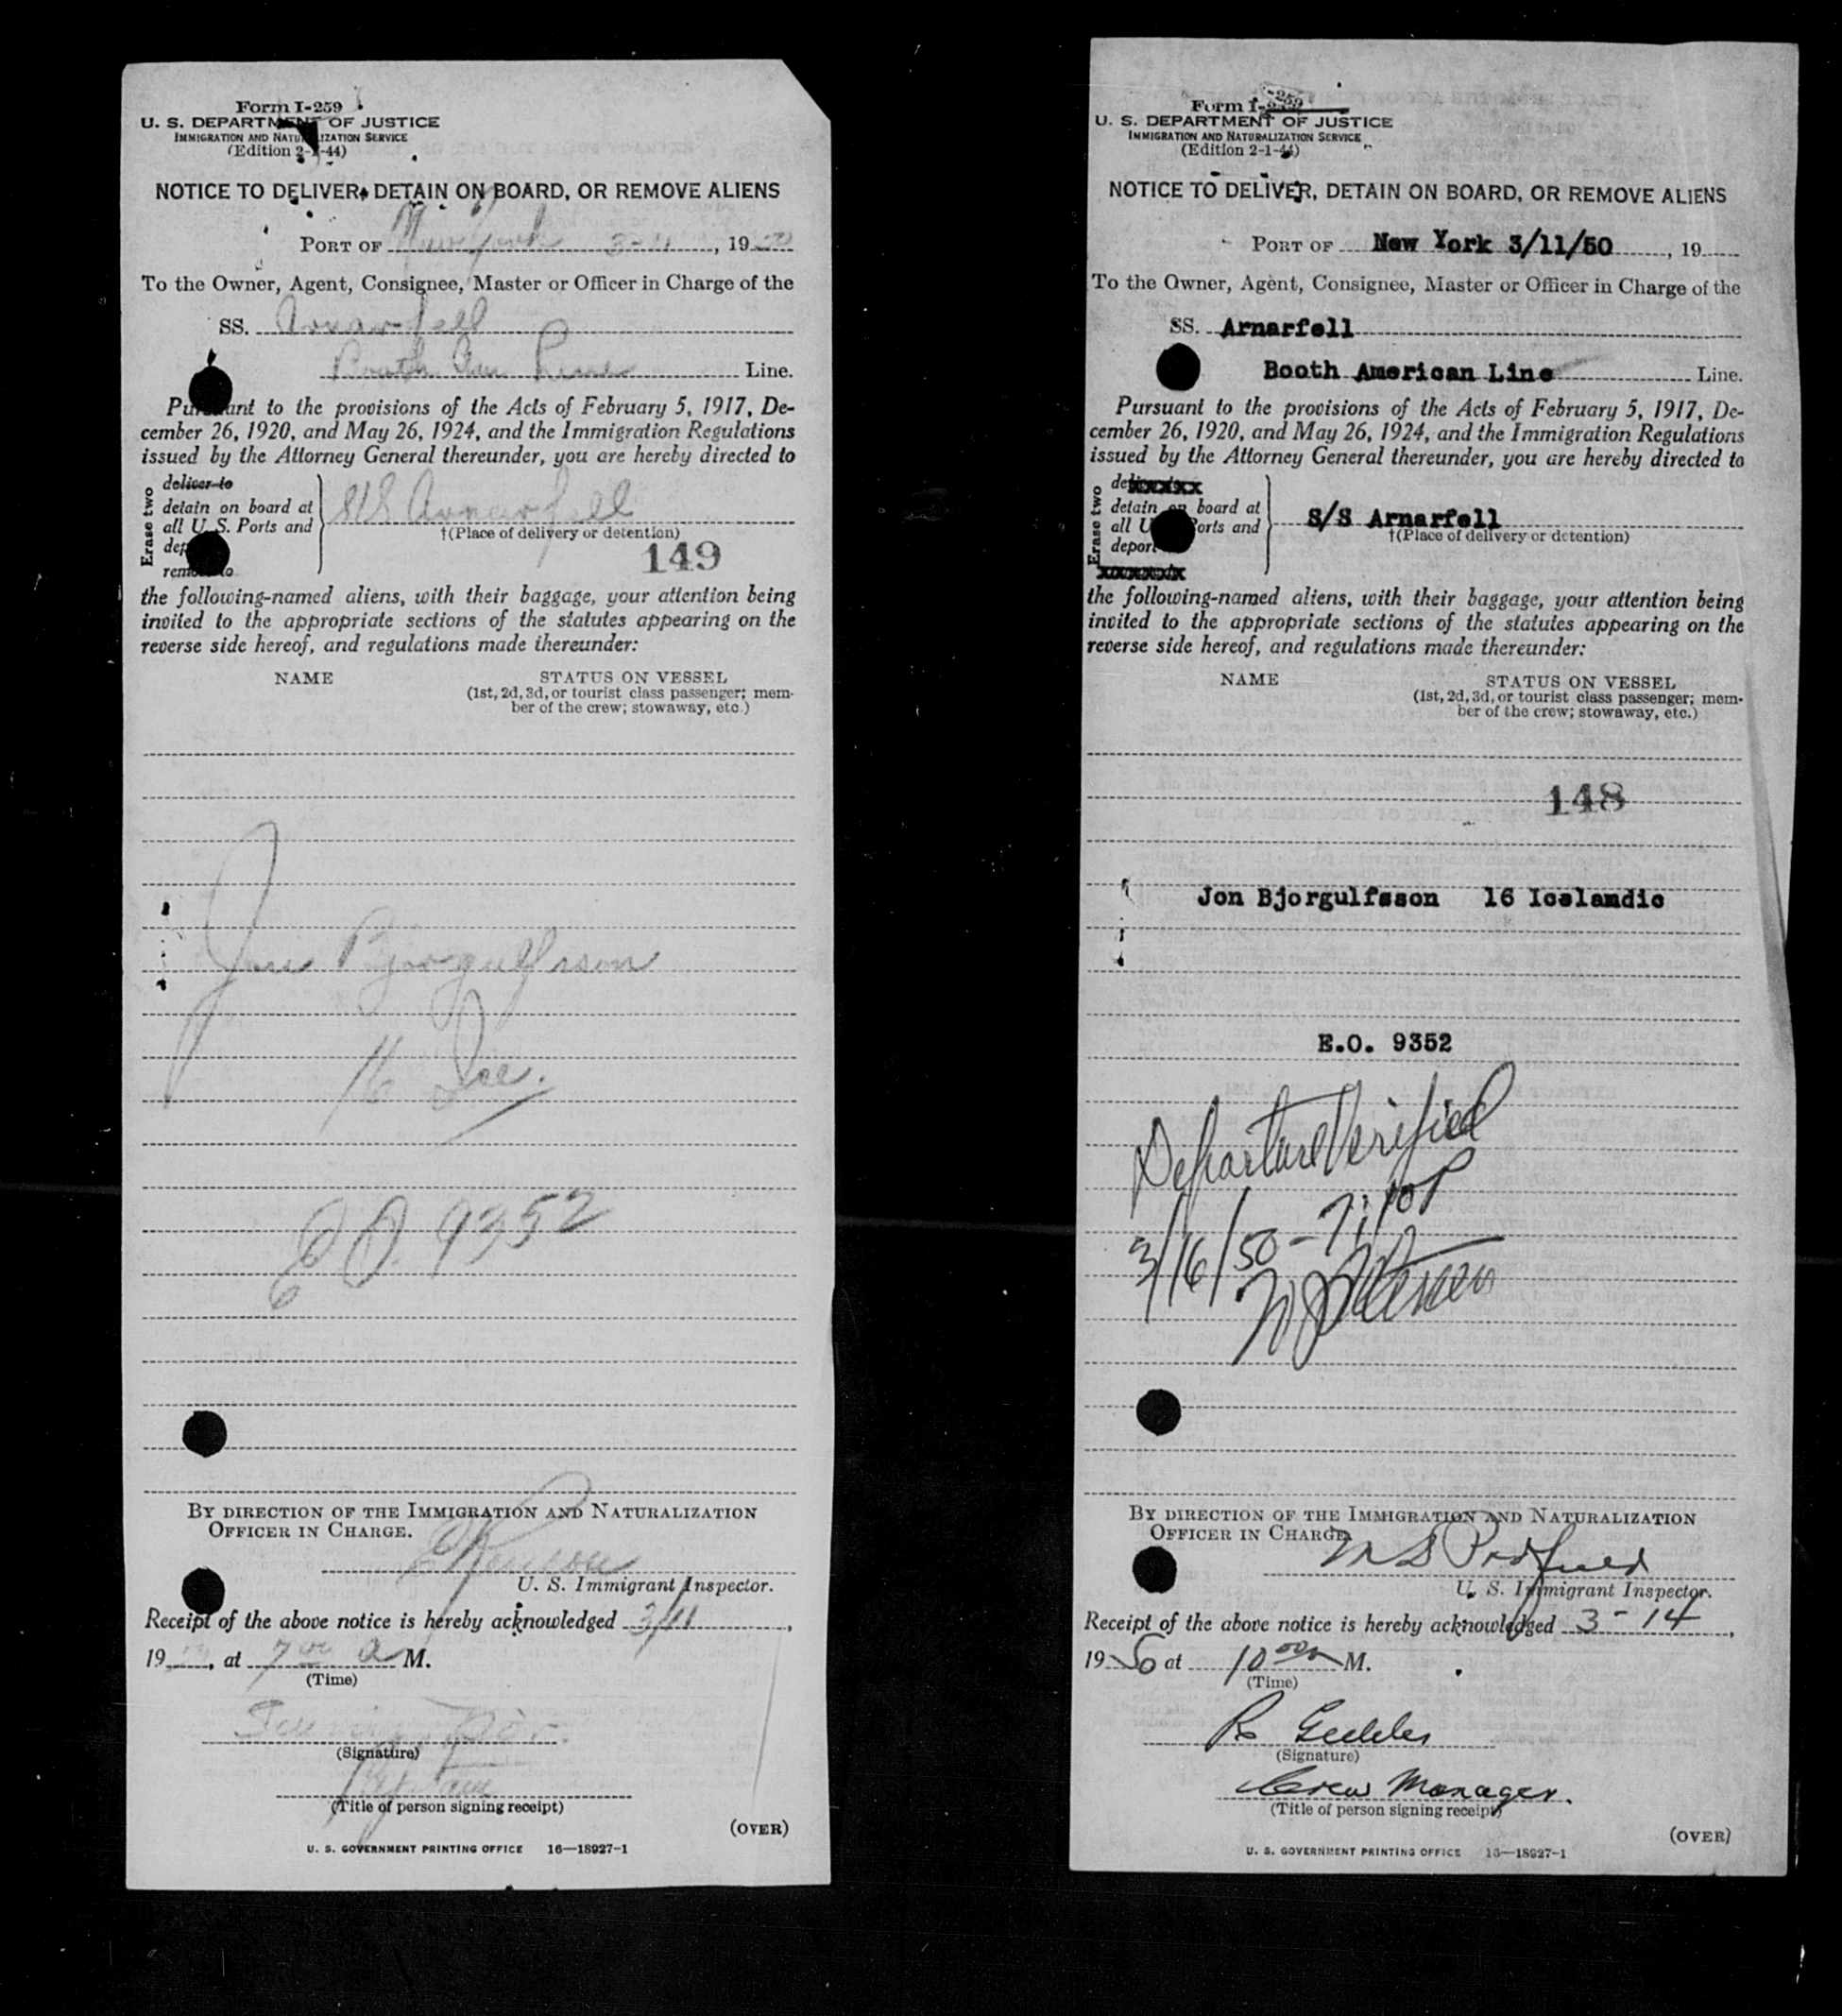 Form I-259
U. S. DEPARTMENT OF JUSTICE
IMMIGRATION AND NATURALIZATION SERVICE
(Edition 2-1-44)
NOTICE TO DELIVER, DETAIN ON BOARD, OR REMOVE ALIENS
PORT OF New York 3-11, 1950
To the Owner, Agent, Consignee, Master or Officer in Charge of the
SS. Arnarfell
Booth Am Line Line.
Pursuant to the provisions of the Acts of February 5, 1917, De-
cember 26, 1920, and May 26, 1924, and the Immigration Regulations
issued by the Attorney General thereunder, you are hereby directed to
Erase two
deliver to
detain on board at
all U. S. Ports and
dep
remove to
S/S Arnarfell
†(Place of delivery or detention)
149
the following-named aliens, with their baggage, your attention being
invited to the appropriate sections of the statutes appearing on the
reverse side hereof, and regulations made thereunder:
NAME STATUS ON VESSEL
(1st, 2d, 3d, or tourist class passenger; mem-
ber of the crew; stowaway, etc.)
Jon Bjorgulfsson
16 Ice.
E.O. 9352
BY DIRECTION OF THE IMMIGRATION AND NATURALIZATION
OFFICER IN CHARGE.
U. S. Immigrant Inspector.
Receipt of the above notice is hereby acknowledged 3/11,
19, at 7 00 A M.
(Time)
(Signature)
(Title of person signing receipt)
(OVER)
U. S. GOVERNMENT PRINTING OFFICE 16—18927-1
Form I-259
U. S. DEPARTMENT OF JUSTICE
IMMIGRATION AND NATURALIZATION SERVICE
(Edition 2-1-44)
NOTICE TO DELIVER, DETAIN ON BOARD, OR REMOVE ALIENS
PORT OF New York 3/11/50, 19
To the Owner, Agent, Consignee, Master or Officer in Charge of the
SS. Arnarfell
Booth American Line Line.
Pursuant to the provisions of the Acts of February 5, 1917, De-
cember 26, 1920, and May 26, 1924, and the Immigration Regulations
issued by the Attorney General thereunder, you are hereby directed to
Erase two
dexxxxxx
detain on board at
all U Ports and
deport
xxxxxxx
S/S Arnarfell
†(Place of delivery or detention)
the following-named aliens, with their baggage, your attention being
invited to the appropriate sections of the statutes appearing on the
reverse side hereof, and regulations made thereunder:
NAME STATUS ON VESSEL
(1st, 2d, 3d, or tourist class passenger; mem-
ber of the crew; stowaway, etc.)
148
Jon Bjorgulfsson 16 Icelandic
E.O. 9352
Departure Verified
3/16/50 - 7:10P
BY DIRECTION OF THE IMMIGRATION AND NATURALIZATION
OFFICER IN CHARGE.
U. S. Immigrant Inspector.
Receipt of the above notice is hereby acknowledged 3-14,
1950 at 10 00 M.
(Time)
R Geddes
(Signature)
Crew Manager.
(Title of person signing receipt)
(OVER)
U. S. GOVERNMENT PRINTING OFFICE 16—18927-1